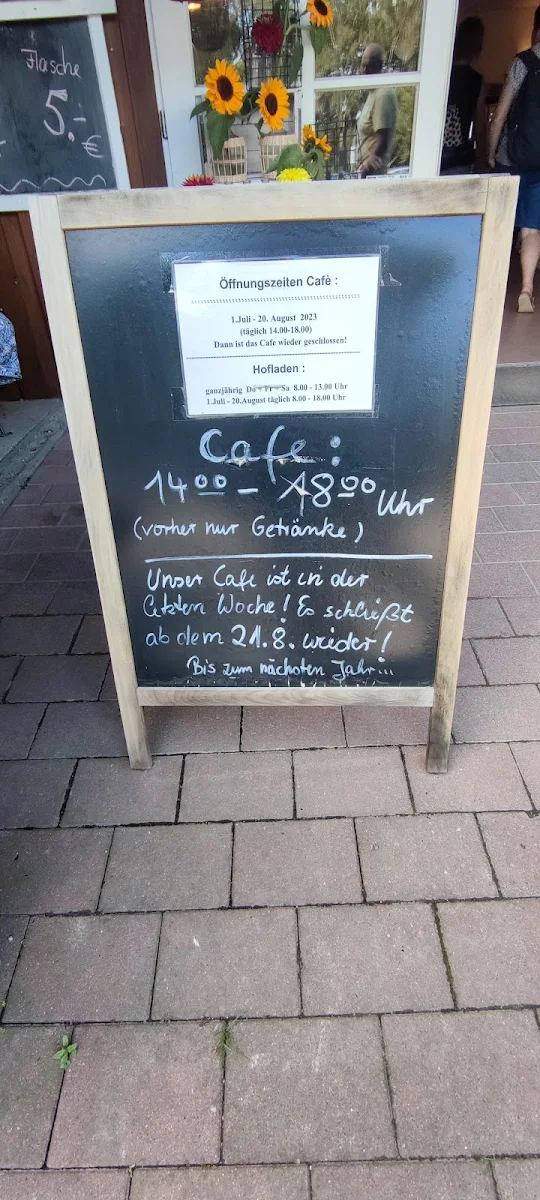 Flasche
5.-
€
Öffnungszeiten Cafè :
1.Juli - 20. August 2023
(täglich 14.00-18.00)
Dann ist das Cafe wieder geschlossen!
Hofladen :
ganzjährig Do - Fr - Sa 8.00 - 13.00 Uhr
1.Juli - 20.August täglich 8.00 - 18.00 Uhr
Cafe :
14 00 - 18 00 Uhr
(vorher nur Getränke)
Unser Cafe ist in der
letzten Woche! Es schließt
ab dem 21.8. wieder!
Bis zum nächsten Jahr...